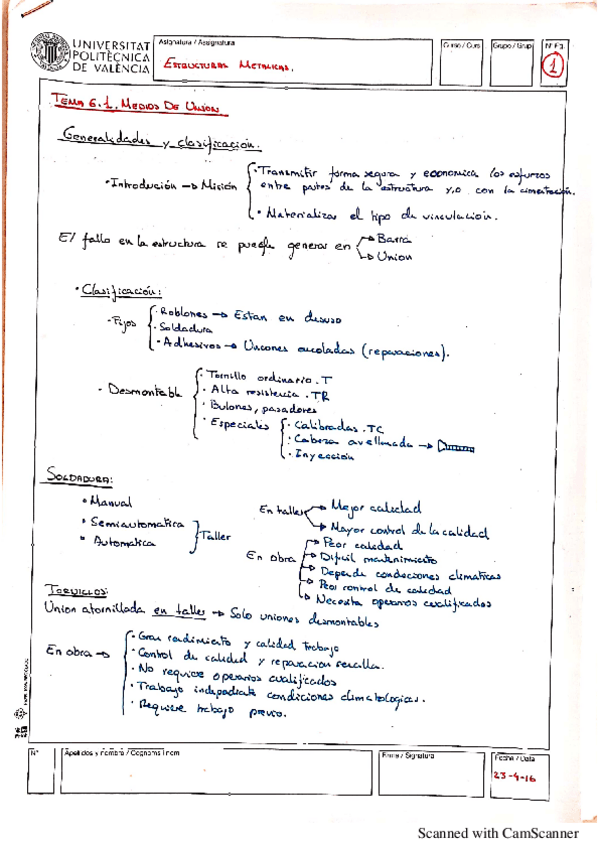 UNIVERSITAT
POLITÈCNICA
DE VALÈNCIA
Asignatura / Assignatura
ESTRUCTURAS METALICAS.
Curso / Curs
Grupo / Grup
1
TEMA 6.1. MEDIOS DE UNION
Generalidades y clasificación.
• Introducción → Misión
• Transmitir forma segura y economica los esfuerzos
entre partes de la estructura y,o con la cimentación.
• Materializar el tipo de vinculación.
El fallo en la estructura se puede generar en → Barra
→ Union
• Clasificación:
• Fijos
• Roblones → Estan en desuso
• Soldadura
• Adhesivos → Uniones encoladas (reparaciones).
• Desmontable
• Tornillo ordinario . T
• Alta resistencia . TR
• Bulones, pasadores
• Especiales
• Calibradas . TC
• Cabeza avellanada →
• Inyección
SOLDADURA:
• Manual
• Semiautomatica
• Automatica
Taller
En taller → Mejor calidad
→ Mayor control de la calidad
En obra → Peor calidad
→ Dificil mantenimiento
→ Depende condiciones climaticas
→ Peor control de calidad
→ Necesita operarios cualificados
TORNILLOS:
Union atornillada en taller → Solo uniones desmontables
En obra →
• Gran rendimiento y calidad trabajo
• Control de calidad y reparación sencilla.
• No requiere operarios cualificados
• Trabajo independiente condiciones climatologicas.
• Requiere trabajo previo.
Nº
Apellidos y nombre / Cognoms i nom
Firma / Signatura
Fecha / Data
23-4-16
Scanned with CamScanner